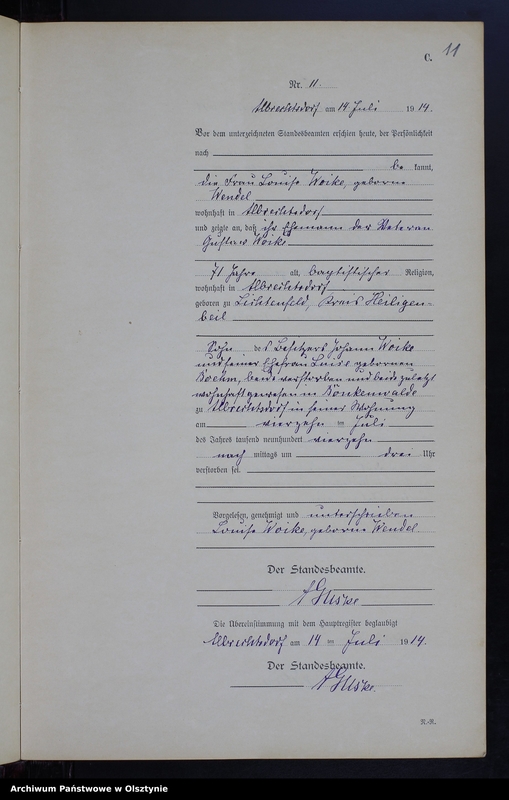 C. 11
Nr. 11.
Albrechtsdorf am 14 Juli 1914.
Vor dem unterzeichneten Standesbeamten erschien heute, der Persönlichkeit
nach
be kannt,
die Frau Louise Woike, geborne
Wendel
wohnhaft in Albrechtsdorf
und zeigte an, daß ihr Ehemann der Veteran
Gustav Woike
71 Jahre alt, baptistischer Religion,
wohnhaft in Albrechtsdorf
geboren zu Lichtenfeld, Kreis Heiligen-
beil
Sohn des Besitzers Johann Woike
und seiner Ehefrau Luise gebornen
Boehm, beide verstorben und beide zuletzt
wohnhaft gewesen in Bönkenwalde
zu Albrechtsdorf in seiner Wohnung
am vierzehn ten Juli
des Jahres tausend neunhundert vierzehn
nach mittags um drei Uhr
verstorben sei.
Vorgelesen, genehmigt und unterschrieben
Louise Woike, geborne Wendel
Der Standesbeamte.
Die Übereinstimmung mit dem Hauptregister beglaubigt
Albrechtsdorf am 14 ten Juli 1914.
Der Standesbeamte.
R.-R.
Archiwum Państwowe w Olsztynie